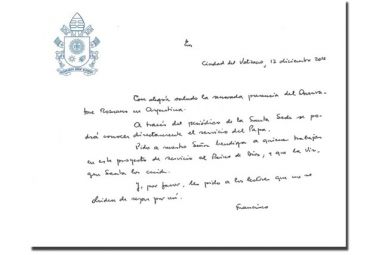 Ciudad del Vaticano, 12 diciembre
Con alegría saludo la renovada presencia del Osserva-
tore Romano en Argentina.
A través del periódico de la Santa Sede se po-
drá conocer directamente el servicio del Papa.
Pido a nuestro Señor bendiga a quienes trabajan
en este proyecto de servicio al Reino de Dios, y que la Vir-
gen Santa los cuide.
Y, por favor, les pido a los lectores que no se
olviden de rezar por mí.
Francisco